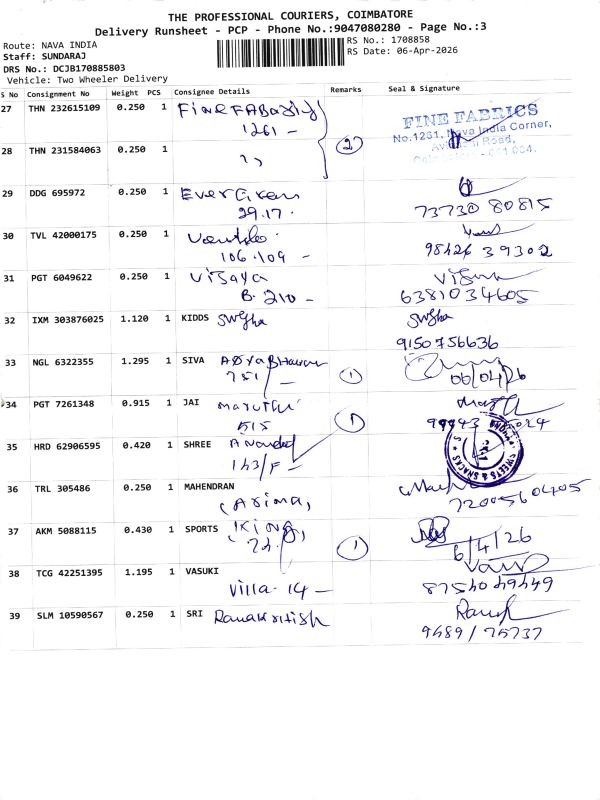 THE PROFESSIONAL COURIERS, COIMBATORE
Delivery Runsheet - PCP - Phone No.:9047080280 - Page No.:3
Route: NAVA INDIA
RS No.: 1708858
Staff: SUNDARAJ
RS Date: 06-Apr-2026
DRS No.: DCJB170885803
Vehicle: Two Wheeler Delivery
S No Consignment No Weight PCS Consignee Details Remarks Seal & Signature
27 THN 232615109 0.250 1
1261 -
FINE FABRICS
No.1261, Nava India Corner,
Road,
28 THN 231584063 0.250 1 ,, 2
29 DDG 695972 0.250 1 Evergreen
29.17. 73730 80815
30 TVL 42000175 0.250 1
106.109 - 98426 39302
31 PGT 6049622 0.250 1 Vijaya
B. 210 - 6381034605
32 IXM 303876025 1.120 1 KIDDS
9150756636
33 NGL 6322355 1.295 1 SIVA
751/- 1 06/04/26
34 PGT 7261348 0.915 1 JAI Maruthi
515 1
35 HRD 62906595 0.420 1 SHREE Anandd
143/F - SWEETS & SNACAS
36 TRL 305486 0.250 1 MAHENDRAN
7200560405
37 AKM 5088115 0.430 1 SPORTS King
1 6/4/26
38 TCG 42251395 1.195 1 VASUKI
Villa-14 - 8754049449
39 SLM 10590567 0.250 1 SRI
9489/75737